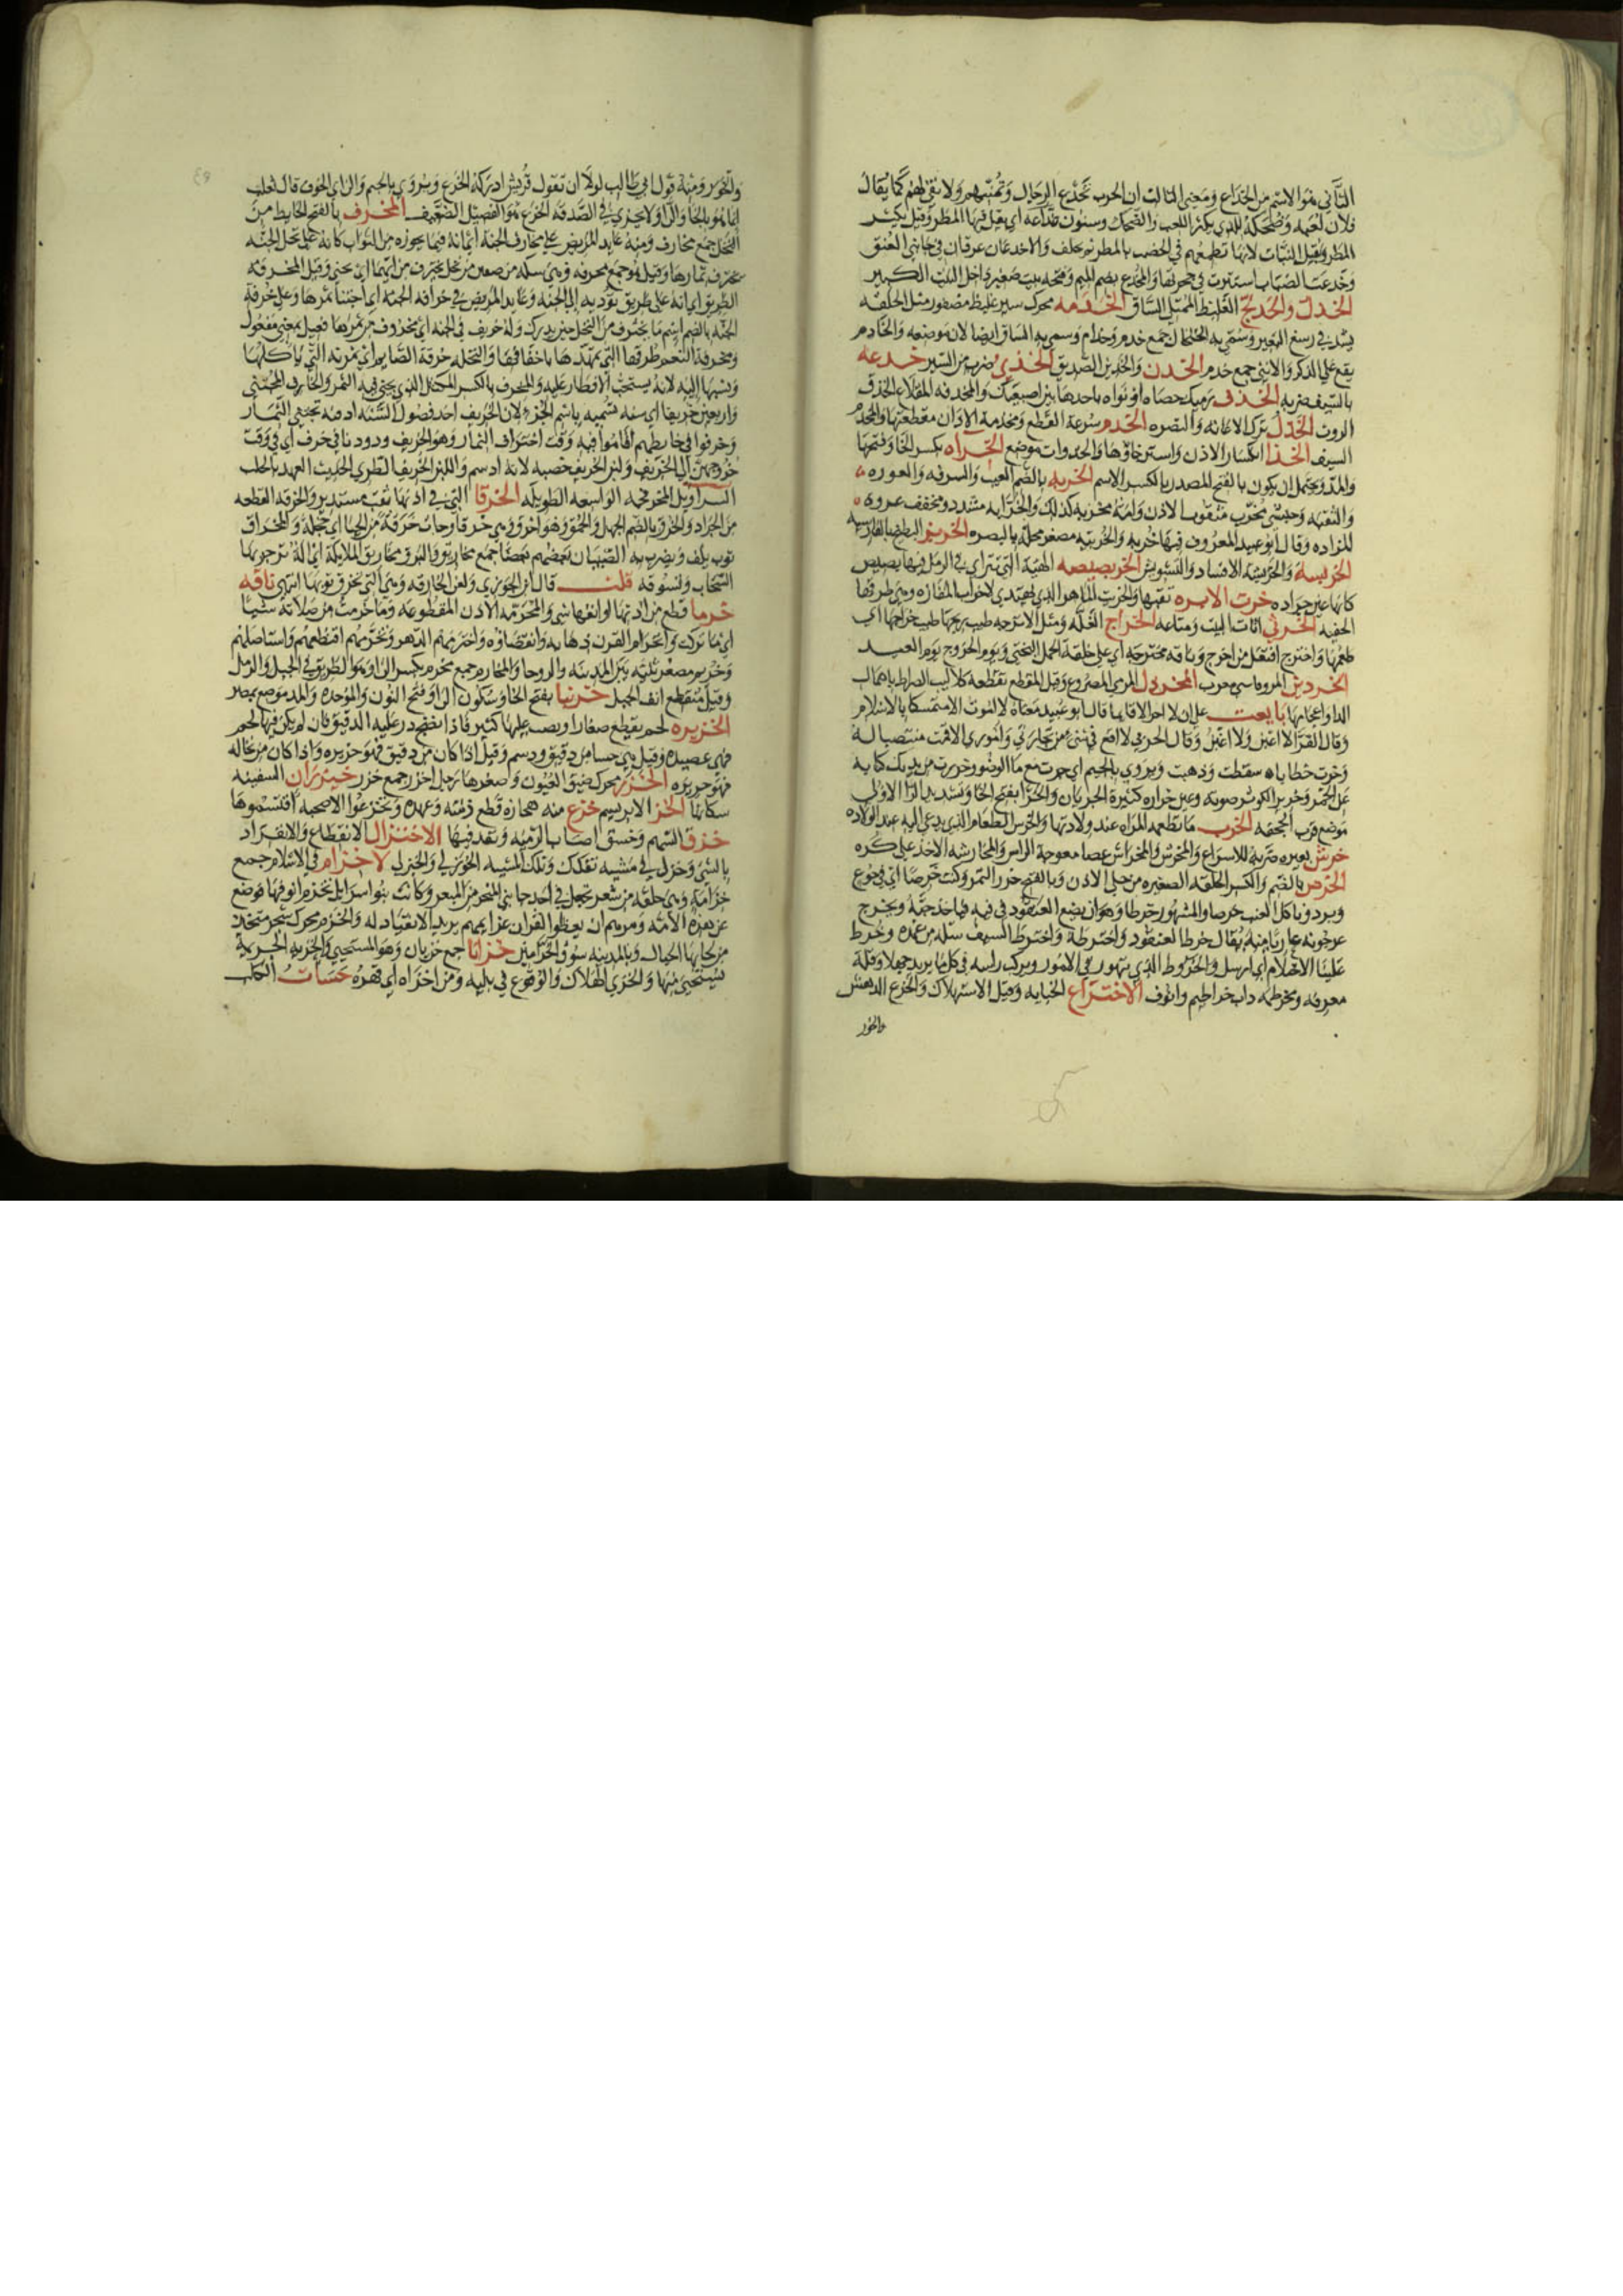 الثاني هو الاسم من الخداع ومعنى الثالث ان الحرب تخدع الرجال وتمنيهم ولا تفي لهم كما يقال
فلان لعبه وضحكه للذي يكثر اللعب والضحك وسنون خداعه اي يقل فيها المطر وقيل يكثر
المطر ويقل النبات لانها تطمعهم في الخصب بالمطر ثم تخلف والاخدعان عرقان في جانبي العنق
وخدعت الضباب استترت في جحرتها والمخدع بضم الميم وفتحه بيت صغير داخل البيت الكبير
الخدل والخدلج الغليظ الممتلي الساق الخدمه محرك سير غليظ مضفور مثل الحلقه
يشد في رسغ البعير وسمي به الخلخال جمع خدم وخدام وسمي به الساق ايضا لان موضعه والخادم
يقع على الذكر والانثى جمع خدم الخدن والخدين الصديق الخذي ضرب من السير خذعه
بالسيف ضربه الخذف رميك حصاه او نواه باخذها بين اصبعيك والمخذفه المقلاع الخذف
الروث الخذل ترك الاعانه والنصره الخذم سرعة القطع ومخذمة الاذان مقطعتها والمخذم
السيف الخذا انكسار الاذن واسترخاؤها والخذوات موضع الخراه بكسر الخا وفتحها
والمد ويحتمل ان يكون بالفتح المصدر بالكسر الاسم الخربه بالضم العيب والسرقه والعوره
والثقبه وحبشي مخرب مثقوب الاذن وامه مخربه كذلك والخرابه مشدد ومخفف عروه
المزاده وقال ابو عبيد المعروف فيها خربه والخريبه مصغر محله بالبصره الخربز البطيخ بالفارسيه
الخربسه والخربشه الافساد والتشويش الخربصيصه الهنة التي تترااي في الرمل فيها بصيص
كانها عين جراده خرت الابره ثقبها والخريت الماهر الذي يهتدي لاخرات المفازه وهي طرقها
الخفيه الخرثي اثاث البيت ومتاعه الخراج الغله ومثل الاترجه طيب ريحها طيب خراجها اي
طعمها واخترج افتعل من اخرج وناقه مخترجه اي على خلقة الجمل البختي ويوم الخروج يوم العيد
المخردل المرمي المصروع وقيل المقطع تقطعه كلاليب الصراط
بايعت على ان لا اخر الا قايما قال ابو عبيد معناه لا اموت الا متمسكا بالاسلام
وقال الفرا لا اغبن ولا اغبن وقال الحربي لا اقع في شي من تجارتي واموري الا قمت منتصبا له
وخرت خطاياه سقطت وذهبت ويروي بالجيم اي جرت مع ما الوضو وخررت من يديك كنايه
عن الخجل وخرير الكوثر صوته وعين خراره كثيرة الجريان والخرار بفتح الخا وتشديد الرا الاولى
موضع قرب الجحفه الخرس ما تطعمه المراه عند ولادتها والخرس الطعام الذي يدعى اليه عند الولاده
خرش بعيره ضربه للاسراع والمخرش والمخراش عصا معوجة الراس والمخارشه الاخذ على كره
الخرص بالضم والكسر الحلقه الصغيره من حلي الاذن وبالفتح حزر التمر وكنت خرصا اي في جوع
وبرد وياكل العنب خرصا والمشهور خرطا وهو ان يضع العنقود في فيه فياخذ حبه ويخرج
عرجونه عاريا منه يقال خرط العنقود واخترطه واخترط السيف سله من غمده وخرط
علينا الاحتلام اي ارسل والخروط الذي يتهور في الامور ويركب راسه في كل ما يريد جهلا وقلة
معرفه ومخرطمه ذات خراطيم وانوف الاختراع الخيانه وقيل الاستهلاك والخرع الدهش
والخور
والخور ومنه قول ابي طالب لولا ان تقول قريش ادركه الخرع ويروى بالجيم والزاي الخوف قال ثعلب
انما هو بالخا والرا ولا يجزي في الصدقه الخرع هو الفصيل الضعيف المخرف بالفتح الحايط من
النخل جمع مخارف ومنه عايد المريض على مخارف الجنة اي انه فيما يحوزه من الثواب كانه على نخل الجنه
يخترف ثمارها وقيل هو جمع مخرفه وهي سكه من صفين من نخل يخترف من ايهما اي يجني وقيل المخرفه
الطريق اي انه على طريق تؤديه الى الجنه وعايد المريض في خرافة الجنه اي اجتنا ثمرها وعلى خرفة
الجنه بالضم اسم ما يخترف من النخل حين يدرك وله خريف في الجنه اي مخروف من ثمرها فعيل بمعنى مفعول
ومخرفة النعم طرقها التي تمهدها باخفافها والنخله خرفة الصايم اي ثمرته التي ياكلها
ونسبها اليه لانه يستحب الافطار عليه والمخرف بالكسر المكتل الذي يجنى فيه الثمر والخارف المجتني
واربعين خريفا اي سنه تسميه باسم الجزء ولان الخريف احد فصول السنه اد فيه تجتنى الثمار
وخرفوا في حايطهم اقاموا فيه وقت اختراف الثمار وهو الخريف ودود ناتي في خرف اي في وقت
خروجهن الى الخريف ولبن الخريف خصبه لانه ادسم واللبن الخريف الطري الحديث العهد بالحلب
السراويل المخرفجه الواسعه الطويله الخرقا التي في اذنها ثقب مستدير والخرقه القطعه
من الجراد والخرق بالضم الجهل والحمق وهو اخرق وهي خرقا وجات خرقة من الحيا اي خجله والمخراق
ثوب يلف ويضرب به الصبيان بعضهم بعضا جمع مخاريق والبرق مخاريق الملايكة اي اله تزجر بها
السحاب وتسوقه قلت قال ابن الجوزي ولعن الخارقه وهي التي تخرق ثوبها انتهى ناقه
خرما قطع من اذنها او انفها شي والمخرمه الاذن المقطوعه وما خرمت من صلاته شيا
اي ما تركت وانخرام القرن ذهابه وانقضاؤه واخترمهم الدهر وتخرمهم اقتطعهم واستاصلهم
وخريم مصغر ثنيه بين المدينه والروحا والمخارم جمع مخرم بكسر الرا وهو الطريق في الجبل والرمل
وقيل منقطع انف الجبل خرنبا بفتح الخا وسكون الرا وفتح النون والموحده والمد موضع بمصر
الخزيره لحم يقطع صغارا ويصب عليها كثير فاذا انضج ذر عليه الدقيق فان لم يكن فيها لحم
فهي عصيده وقيل هي حسا من دقيق ودسم وقيل اذا كان من دقيق فهو حريره واذا كان من نخاله
فهو خزيره الخزر محرك ضيق العيون وصغرها رجل اخزر جمع خزر خيزران السفينه
سكانها الخز الابريسم خزع منه هجازه قطع ذمته وعهده وتخزعوا الاضحيه اقتسموها
خزق السهم وخسق اصاب الرميه ونفذ فيها الاختزال الانقطاع والانفراد
بالشي وخزل في مشيه تفكك وتلك المشيه الخوزلي والخيزلي لا خزام في الاسلام جمع
خزامة وهي حلقه من شعر تجعل في احد جانبي المنخر من البعير وكانت بنو اسرايل تخزم انوفها فوضع
عن هذه الامه ومرهم ان يعظوا القران عزايمهم يريد الانقياد له والخزم محرك شجر يتخذ
من لحايها الحبال وبالمدينه سوق الخزامين خزايا جمع خزيان وهو المستحيي والخزيه الجريمة
يستحيى منها والخزي الهلاك والوقوع في بليه ومن اخزاه اي قهره خسات الكلب